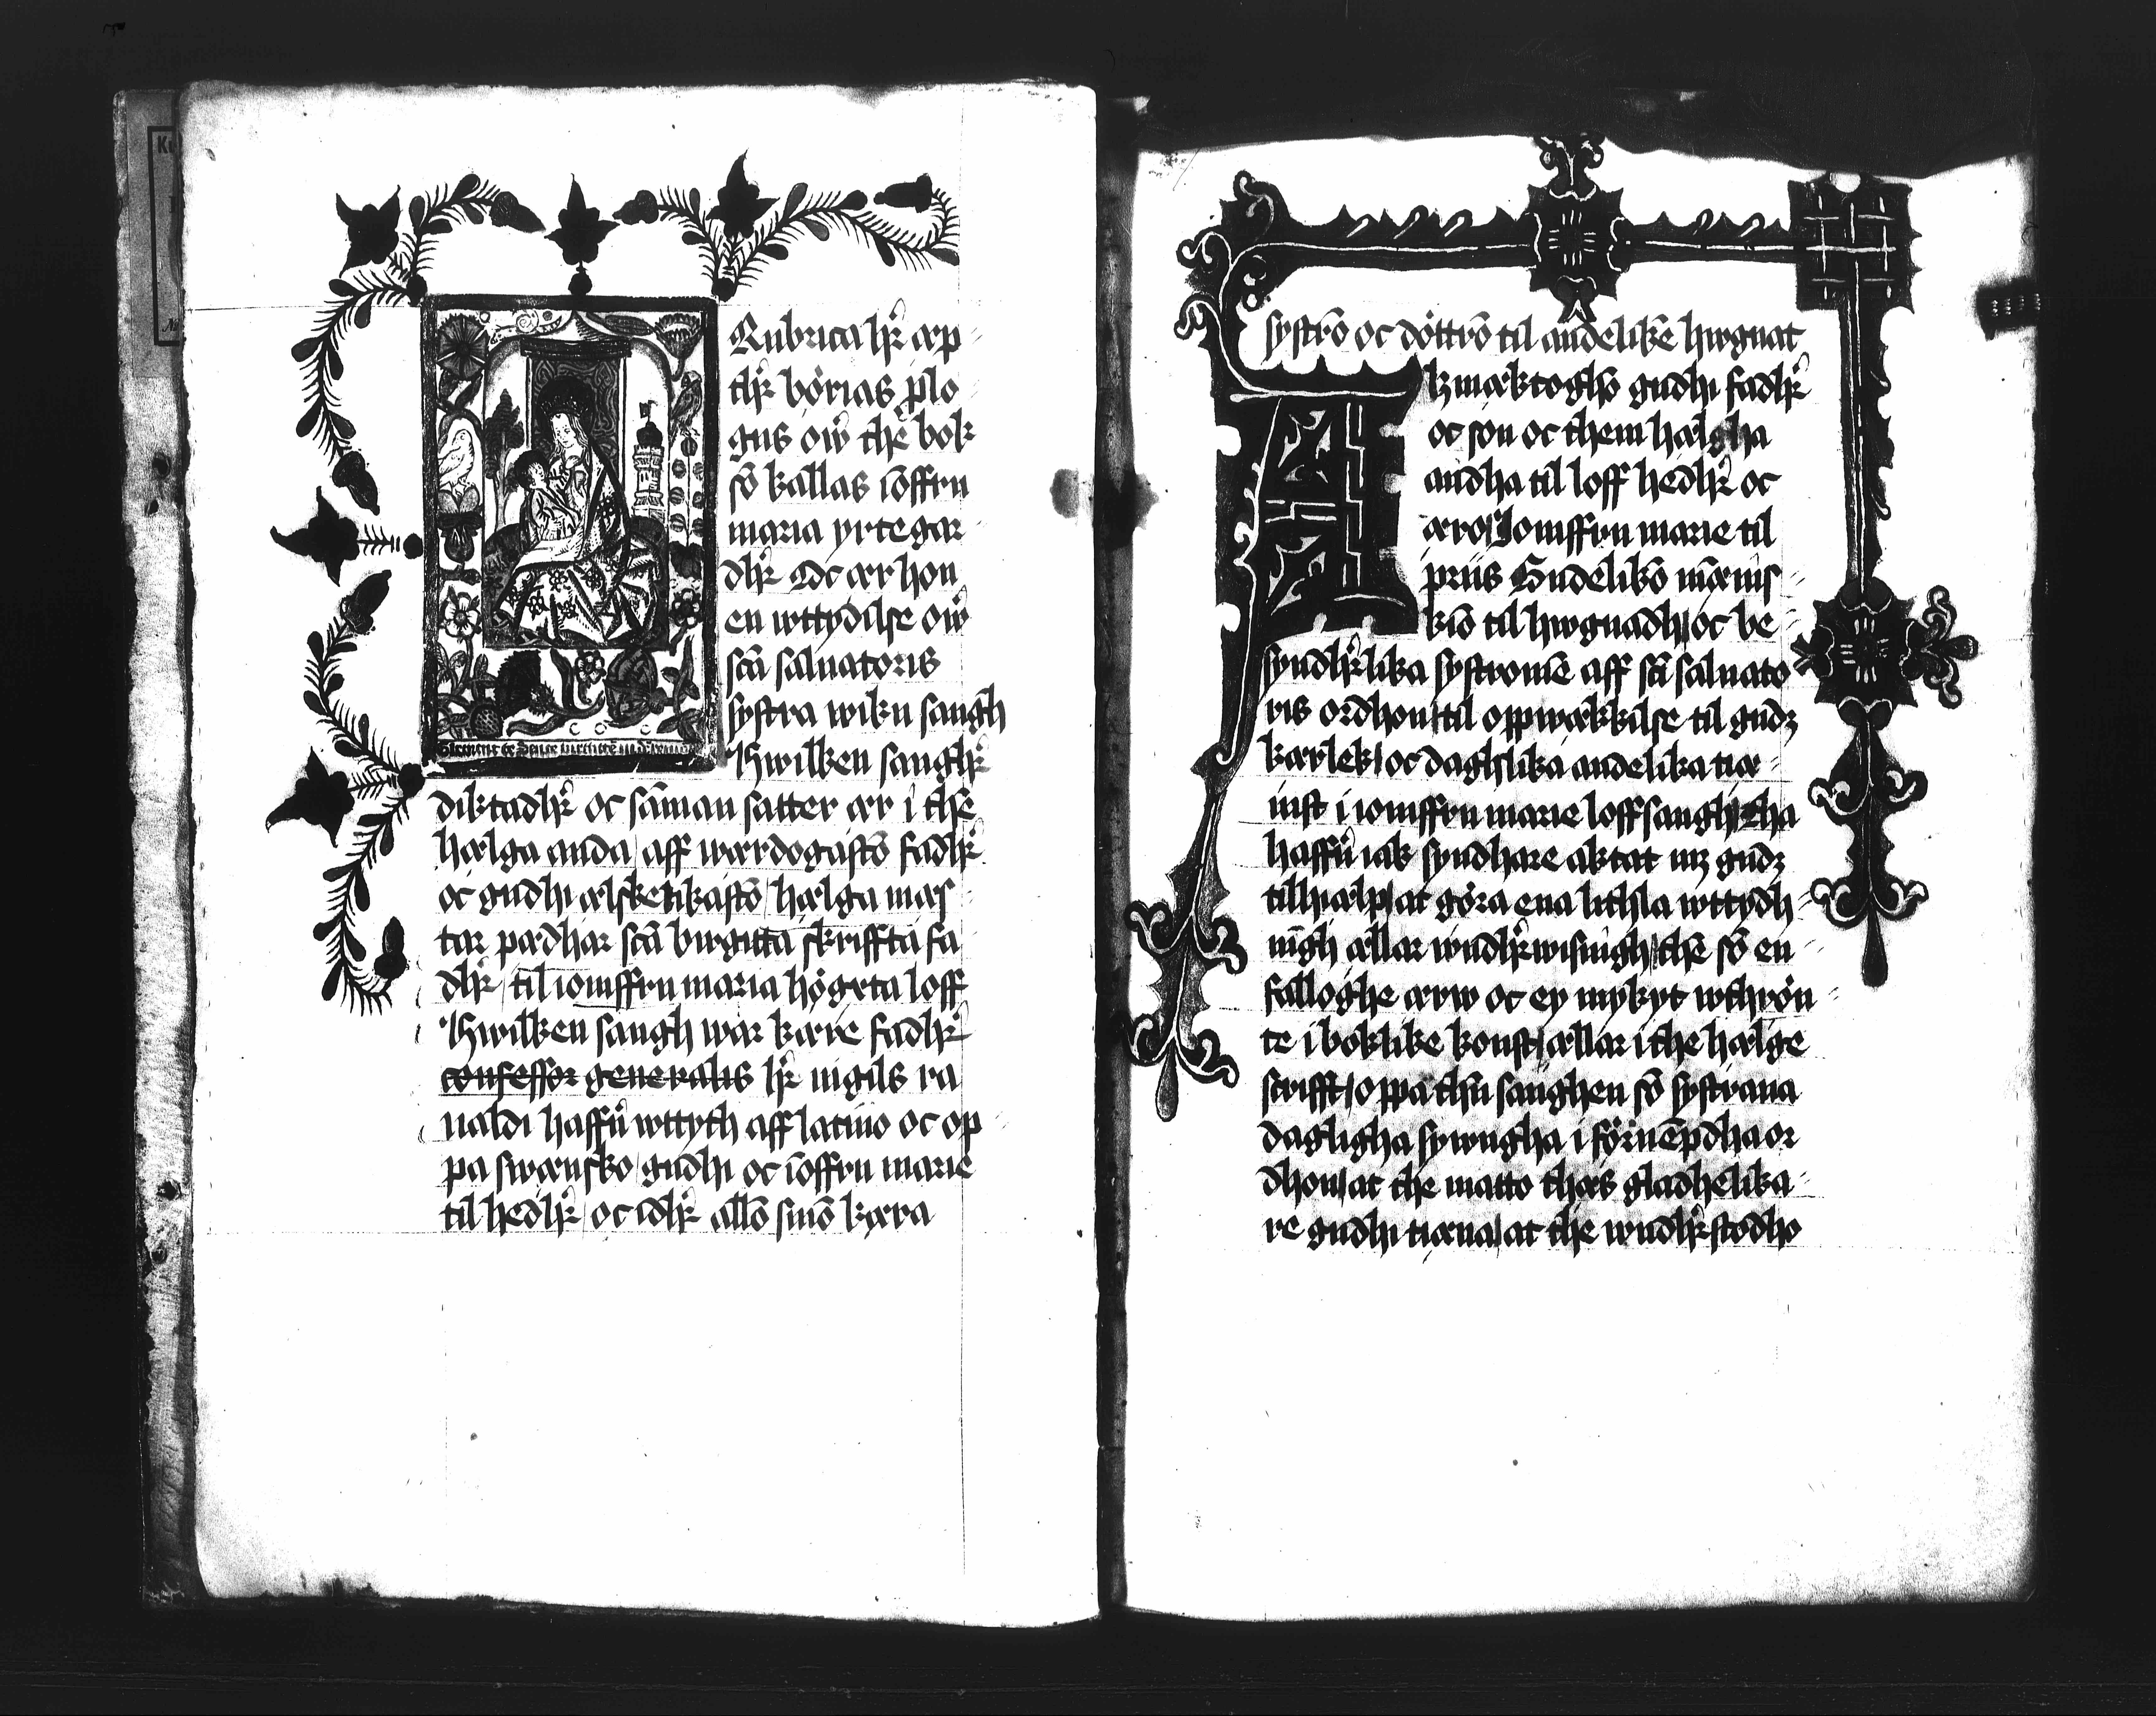 Rubrica hr̄ æp
thr̄ börias plo
gus ow̄ thē bok
sō kallas iōffrv
maria yrtegar
dhr̄ Oc ær hon
en wttydilse ow̄
scā saluatoris
systra wikv sangh
Hwilken sanghr̄
diktadhr̄ oc sāman satter ær i thē
hælga anda aff wærdogastō fadhr̄
oc gudhi ælskelikastō hælga mæs
tar pædhar scā birgitta skriffta fa
dhr̄ til iomffrv maria högxta loff
Hwilken sangh war kære fadhr̄
confessor generalis hr̄ nigils ra
naldi haffū wttyth aff latino oc op
pa swænsko gudhi oc iōffrv marie
til hedhr̄ oc idhr̄ allō sinō kæra
systrō oc döttrō til andelikē hwgnat
Alzmæktoghō gudhi fadhr̄
oc son oc them hælgha
andha til loff hedhr̄ oc
æro Jomffrv marie til
priis Gudelikō mænis
kiō til hwgnadh oc be
syndhr̄lika systromē aff scī saluato
ris ordhon til oppwækkilse til gudz
kærlek oc daghlika andelika tiæ
inst i iomffrv marie loffsangh Tha
haffū iak syndhare aktat mz gudz
tillhiælp at göra ena lithla wttydh
nīgh ællar wndhr̄wisnīgh thē sō en
falloghe ærw oc ey mykyt wthrön
te i boklike konst ællar i the hælge
scrifft oppa thn̄ sanghen sō systrana
daglīgha sywngha i förnēpdha or
dhom at the matto thæs gladhelika
re gudhi tiæna at the wndhr̄stodho